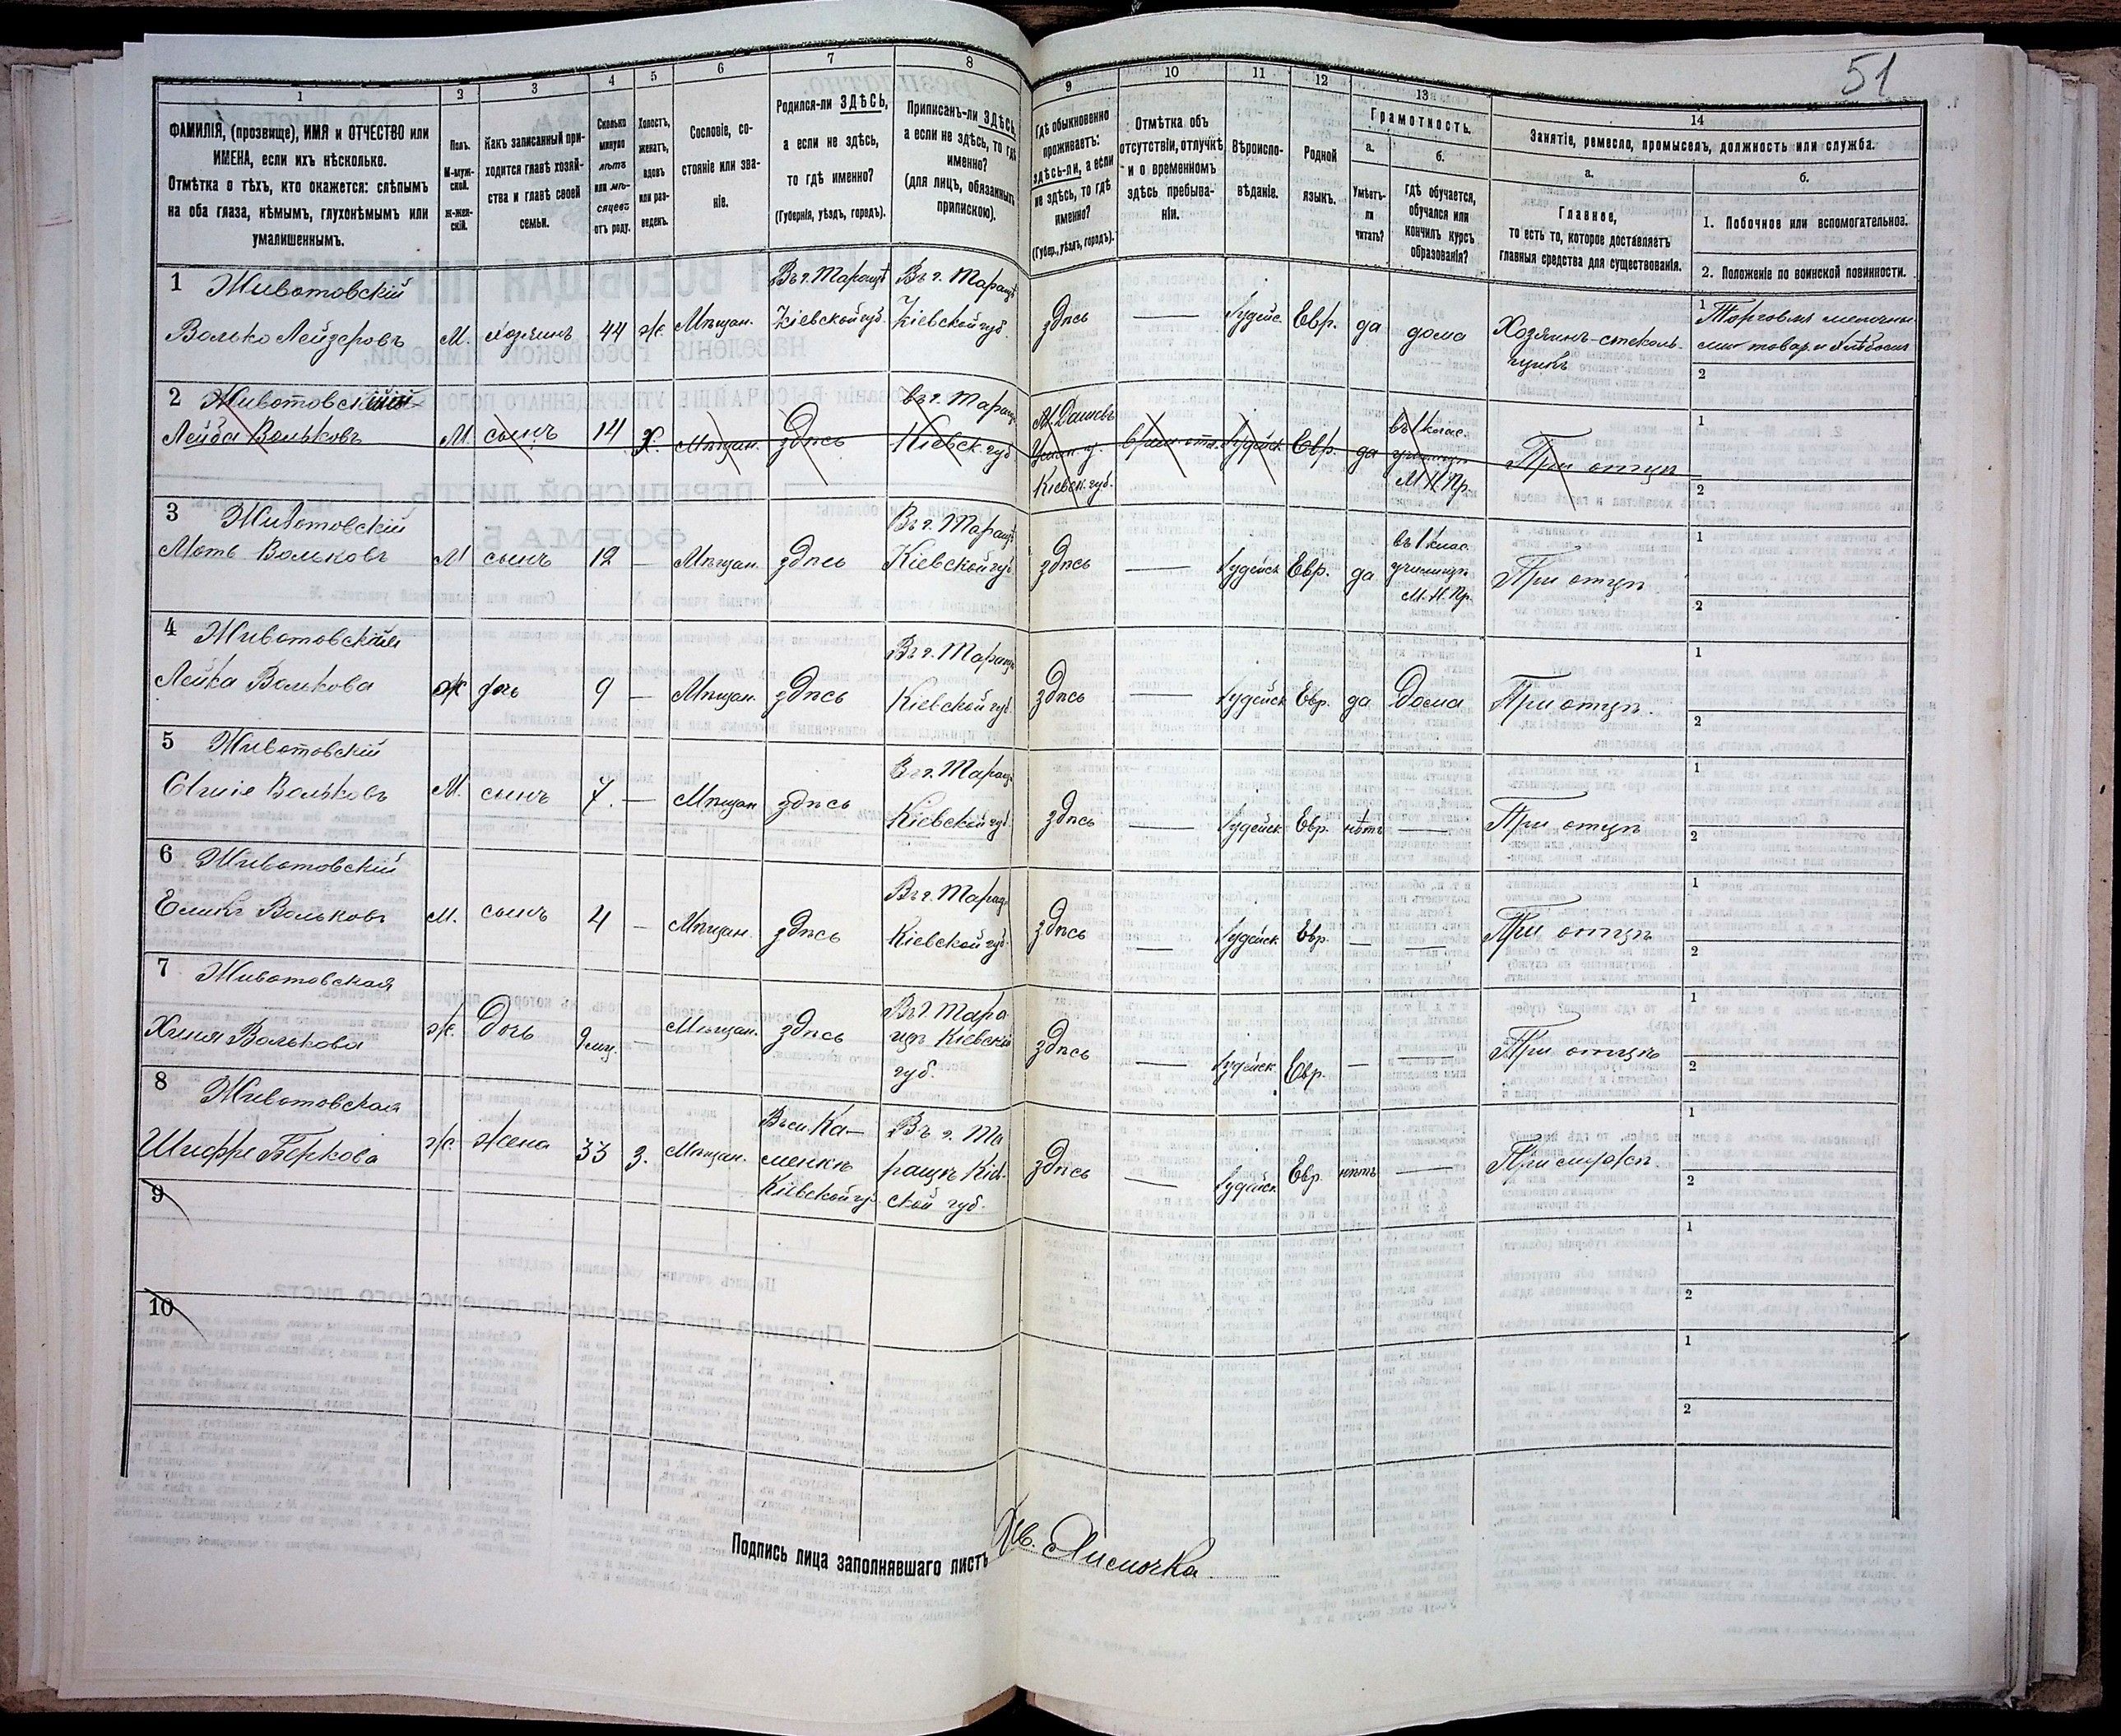 51
1
2
3
4
5
6
7
8
9
10
11
12
13
14
ФАМИЛІЯ, (прозвище), ИМЯ и ОТЧЕСТВО или
ИМЕНА, если ихъ нѣсколько.
Отмѣтка о тѣхъ, кто окажется: слѣпымъ
на оба глаза, нѣмымъ, глухонѣмымъ или
умалишеннымъ.
Полъ.
М-муж-
ской.
Ж-жен-
скій.
Какъ записанный при-
ходится главѣ хозяй-
ства и главѣ своей
семьи.
Сколько
минуло
лѣтъ
или мѣ-
сяцевъ
отъ роду.
Холостъ,
женатъ,
вдовъ
или раз-
веденъ.
Сословіе, со-
стояніе или зва-
ніе.
Родился-ли ЗДѢСЬ,
а если не здѣсь,
то гдѣ именно?
(Губернія, уѣздъ, городъ).
Приписанъ-ли ЗДѢСЬ,
а если не здѣсь, то гдѣ
именно?
(для лицъ, обязанныхъ
припискою).
Гдѣ обыкновенно
проживаетъ:
здѣсь-ли, а если
не здѣсь, то гдѣ
именно?
(Губер., уѣздъ, городъ).
Отмѣтка объ
отсутствіи, отлучкѣ
и о временномъ
здѣсь пребыва-
ніи.
Вѣроиспо-
вѣданіе.
Родной
языкъ.
Грамотность.
а.
Умѣетъ-
ли
читать?
б.
гдѣ обучается,
обучался или
кончилъ курсъ
образованія?
Занятіе, ремесло, промыселъ, должность или служба.
а.
Главное,
то есть то, которое доставляетъ
главныя средства для существованія.
б.
1. Побочное или вспомогательное.
2. Положеніе по воинской повинности.
1 Животовскій
Волько Лейзеровъ
М. хозяинъ 44 ж. Мѣщан.
Въ г. Таращѣ
Кіевской губ.
Въ г. Таращѣ
Кіевской губ.
здѣсь — Іудейс. Евр. да дома
Хозяинъ-стеколь-
щикъ
1 Торговля мелочны-
ми товар. и
2
2 Животовскій
Лейба Вольковъ
М. сынъ 14 Х. Мѣщан. здѣсь
Въ г. Таращѣ
Кіевск. губ.
М. Дашевъ
у.
Кіевск. губ.
Іудейск. Евр. да
въ 1 клас.
училищѣ
М. Н. Пр.
При отцѣ
1
2
3 Животовскій
Моть Вольковъ
М сынъ 12 — Мѣщан. здѣсь
Въ г. Таращѣ
Кіевской губ.
здѣсь — Іудейск Евр. да
въ 1 клас.
училищѣ
М. Н. Пр.
При отцѣ.
1
2
4 Животовская
Лейка Волькова
ж дочь 9 — Мѣщан. здѣсь
Въ г. Таращѣ
Кіевской губ.
здѣсь — Іудейск Евр. да Дома При отцѣ.
1
2
5 Животовскій
Вольковъ
М. сынъ 7. — Мѣщан здѣсь
Въ г. Таращѣ
Кіевской губ.
здѣсь — Іудейск Евр. нѣтъ — При отцѣ
1
2
6 Животовскій
Вольковъ
М. сынъ 4 — Мѣщан. здѣсь
Въ г. Таращ.
Кіевской губ.
здѣсь — Іудейск Евр. — — При отцѣ
1
2
7 Животовская
Волькова
ж. Дочь 9 мц. — Мѣщан. здѣсь
Въ г. Тара
щѣ Кіевской
губ.
здѣсь — Іудейск Евр. — — При отцѣ
1
2
8 Животовская
Шифра Беркова
ж. Жена 33 З. Мѣщан.
Въ с. Ка-
менкѣ
Кіевской губ.
Въ г. Та
ращѣ Кіев-
ской губ.
здѣсь — Іудейск Евр. нѣтъ — При мужѣ.
1
2
9
1
2
10
1
2
Подпись лица заполнявшаго листъ